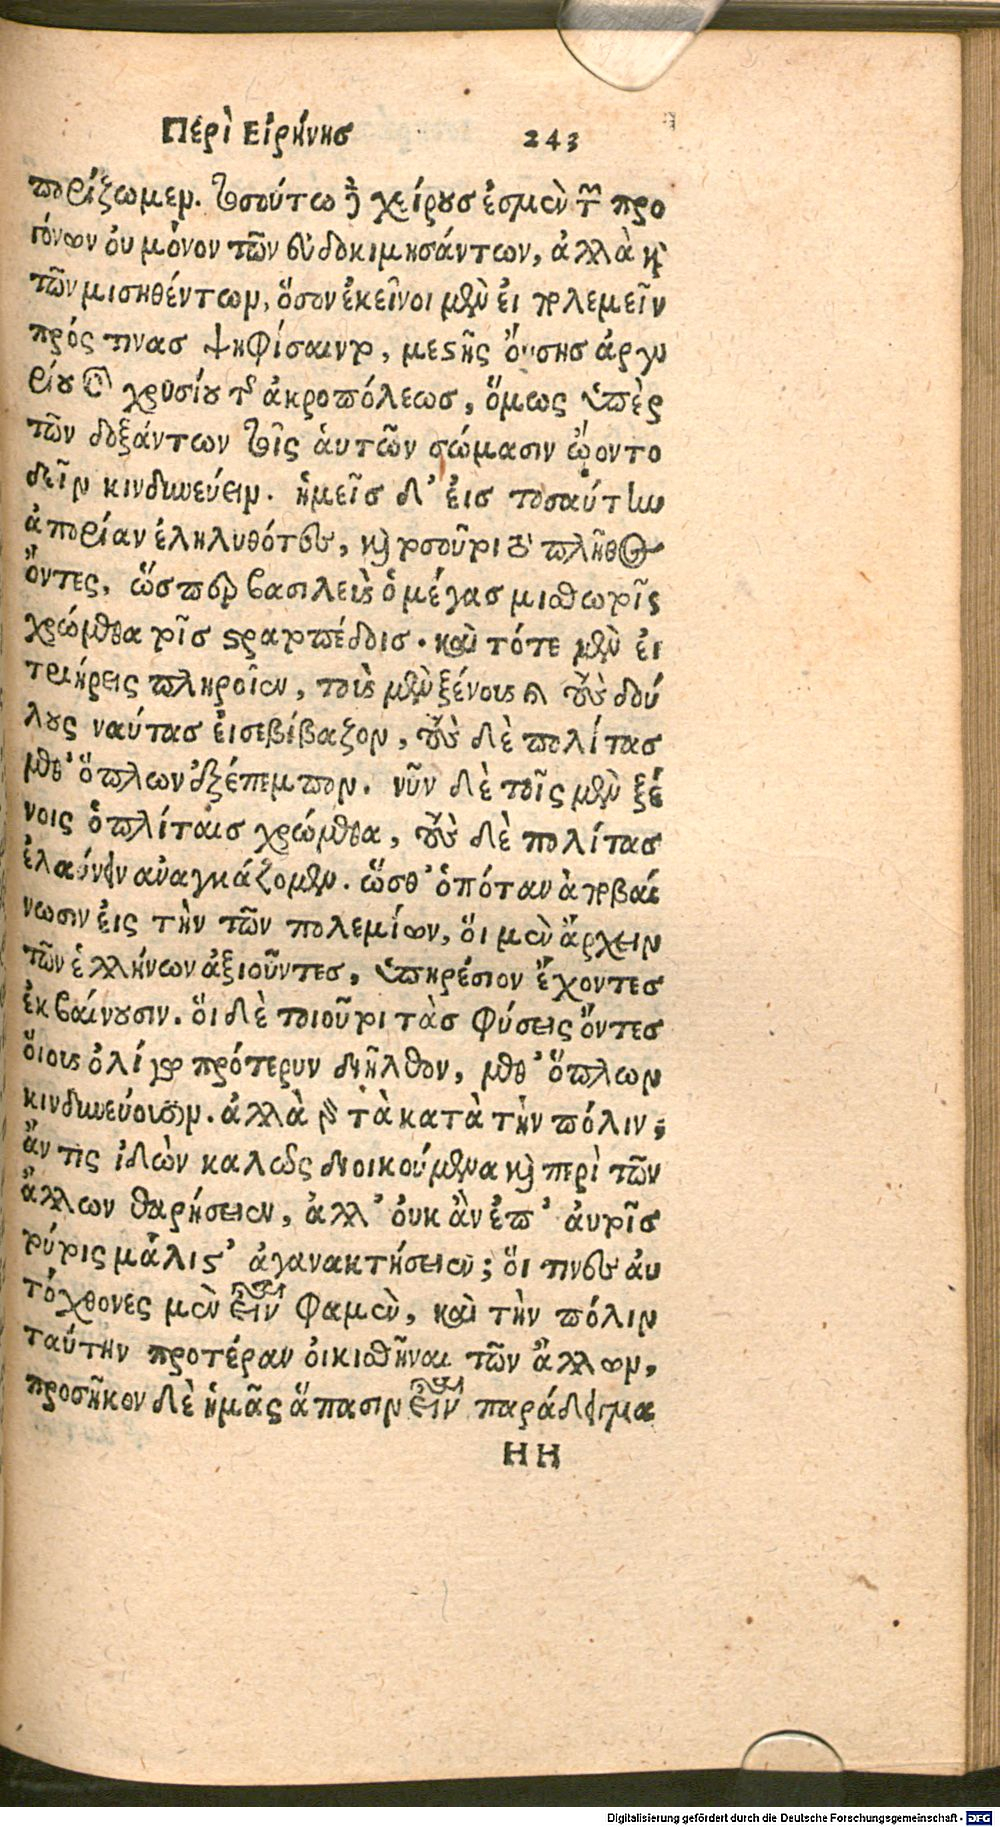 Περὶ Εἰρήνης 243
πορίζωμεν. τοσούτῳ δὲ χείρους ἐσμὲν τῶν προ
γόνων ὀυ μόνον τῶν ἐυδοκιμησάντων, ἀλλὰ καὶ
τῶν μισηθέντων, ὅσον ἐκεῖνοι μὲν ἐι πολεμεῖν
πρός τινας ψηφίσαιντο, μεστῆς ὄυσης ἀργυ
ρίου καὶ χρυσίου τῆς ἀκροπόλεως, ὅμως ὑπὲρ
τῶν δοξάντων τοῖς ἁυτῶν σώμασιν ᾤοντο
δεῖν κινδυνεύειν. ἡμεῖς δ' ἐις τοσαύτην
ἀπορίαν ἐληλυθότες, καὶ τοσοῦτοι τὸ πλῆθος
ὄντες, ὥσπερ βασιλεὺς ὁ μέγας μισθωτοῖς
χρώμεθα τοῖς στρατοπέδοις. καὶ τότε μὲν ἐι
τριήρεις πληροῖεν, τοὺς μὲν ξένους καὶ τοὺς δού
λους ναύτας ἐισεβίβαζον, τοὺς δὲ πολίτας
μεθ' ὅπλων ἐξέπεμπον. νῦν δὲ τοῖς μὲν ξέ
νοις ὁπλίταις χρώμεθα, τοὺς δὲ πολίτας
ἐλαύνειν ἀναγκάζομεν. ὥσθ' ὁπόταν ἀποβαί
νωσιν ἐις τὴν τῶν πολεμίων, ὅι μὲν ἄρχειν
τῶν ἑλλήνων ἀξιοῦντες, ὑπηρέσιον ἔχοντες
ἐκβαίνουσιν. ὅι δὲ τοιοῦτοι τὰς φύσεις ὄντες
ὅιους ὀλίγῳ πρότερον διῆλθον, μεθ' ὅπλων
κινδυνεύουσιν. ἀλλὰ γὰρ τὰ κατὰ τὴν πόλιν,
ἄν τις ἰδὼν καλῶς διοικούμενα καὶ περὶ τῶν
ἄλλων θαρήσειεν, ἀλλ' ὀυκ ἂν ἐπ' ἀυτοῖς
τούτοις μάλιστ' ἀγανακτήσειεν; ὅι τινες ἀυ
τόχθονες μὲν εἶναι φαμὲν, καὶ τὴν πόλιν
ταύτην προτέραν ὀικισθῆναι τῶν ἄλλων,
προσῆκον δὲ ἡμᾶς ἅπασιν εἶναι παράδειγμα
HH
Digitalisierung gefördert durch die Deutsche Forschungsgemeinschaft - DFG